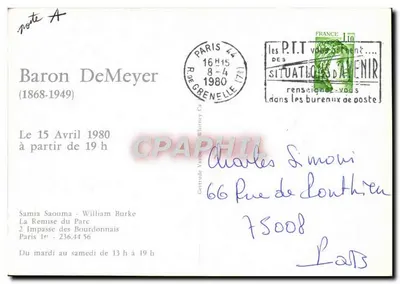 note A
Baron DeMeyer
(1868-1949)
Le 15 Avril 1980
à partir de 19 h
Samia Saouma - William Burke
La Remise du Parc
2 Impasse des Bourdonnais
Paris 1er - 236.44 56
Du mardi au samedi de 13 h à 19 h
PARIS 44
16H15
8-4
1980
R. DE GRENELLE (7E)
les P.T.T vous offrent....
DES
SITUATIONS D'AVENIR
renseignez-vous
dans les bureaux de poste
FRANCE
1,10
CPAPHIL
Charles Simoni
66 Rue de Ponthieu
75008
Paris